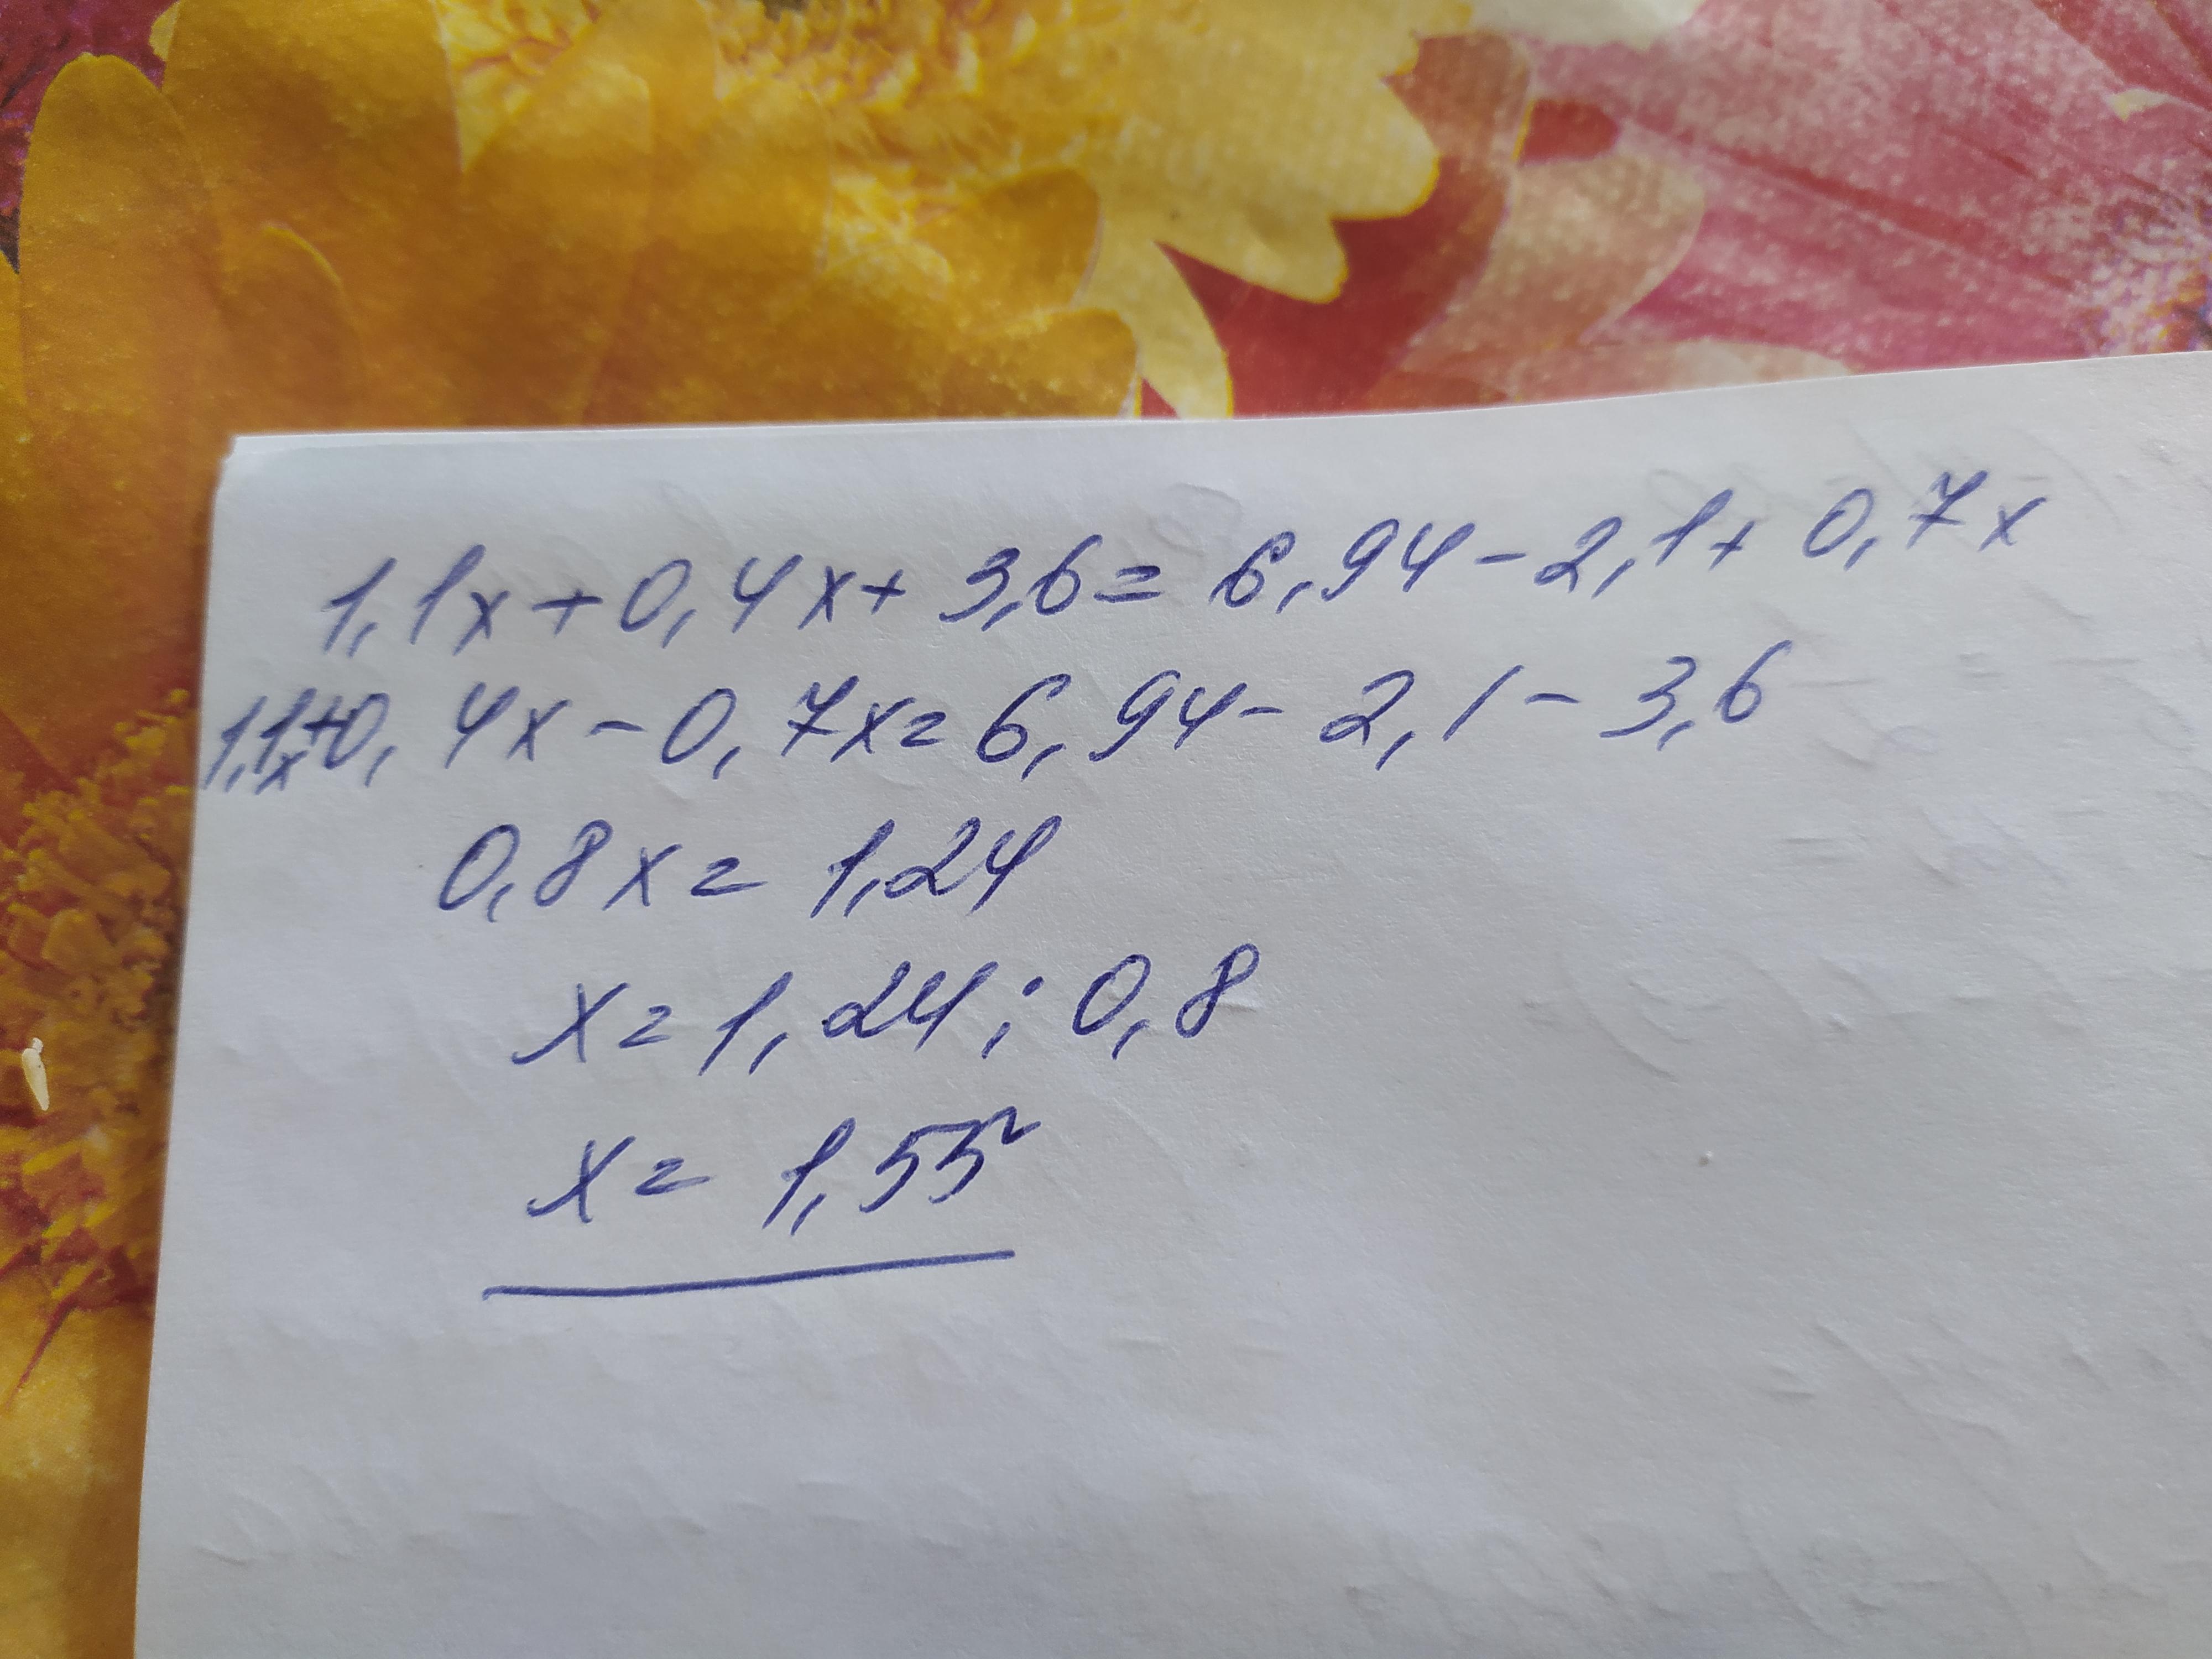 1,1x+0,4x+3,6=6,94-2,1+0,7x
1,1x+0,4x-0,7x=6,94-2,1-3,6
0,8x=1,24
x=1,24:0,8
x=1,55